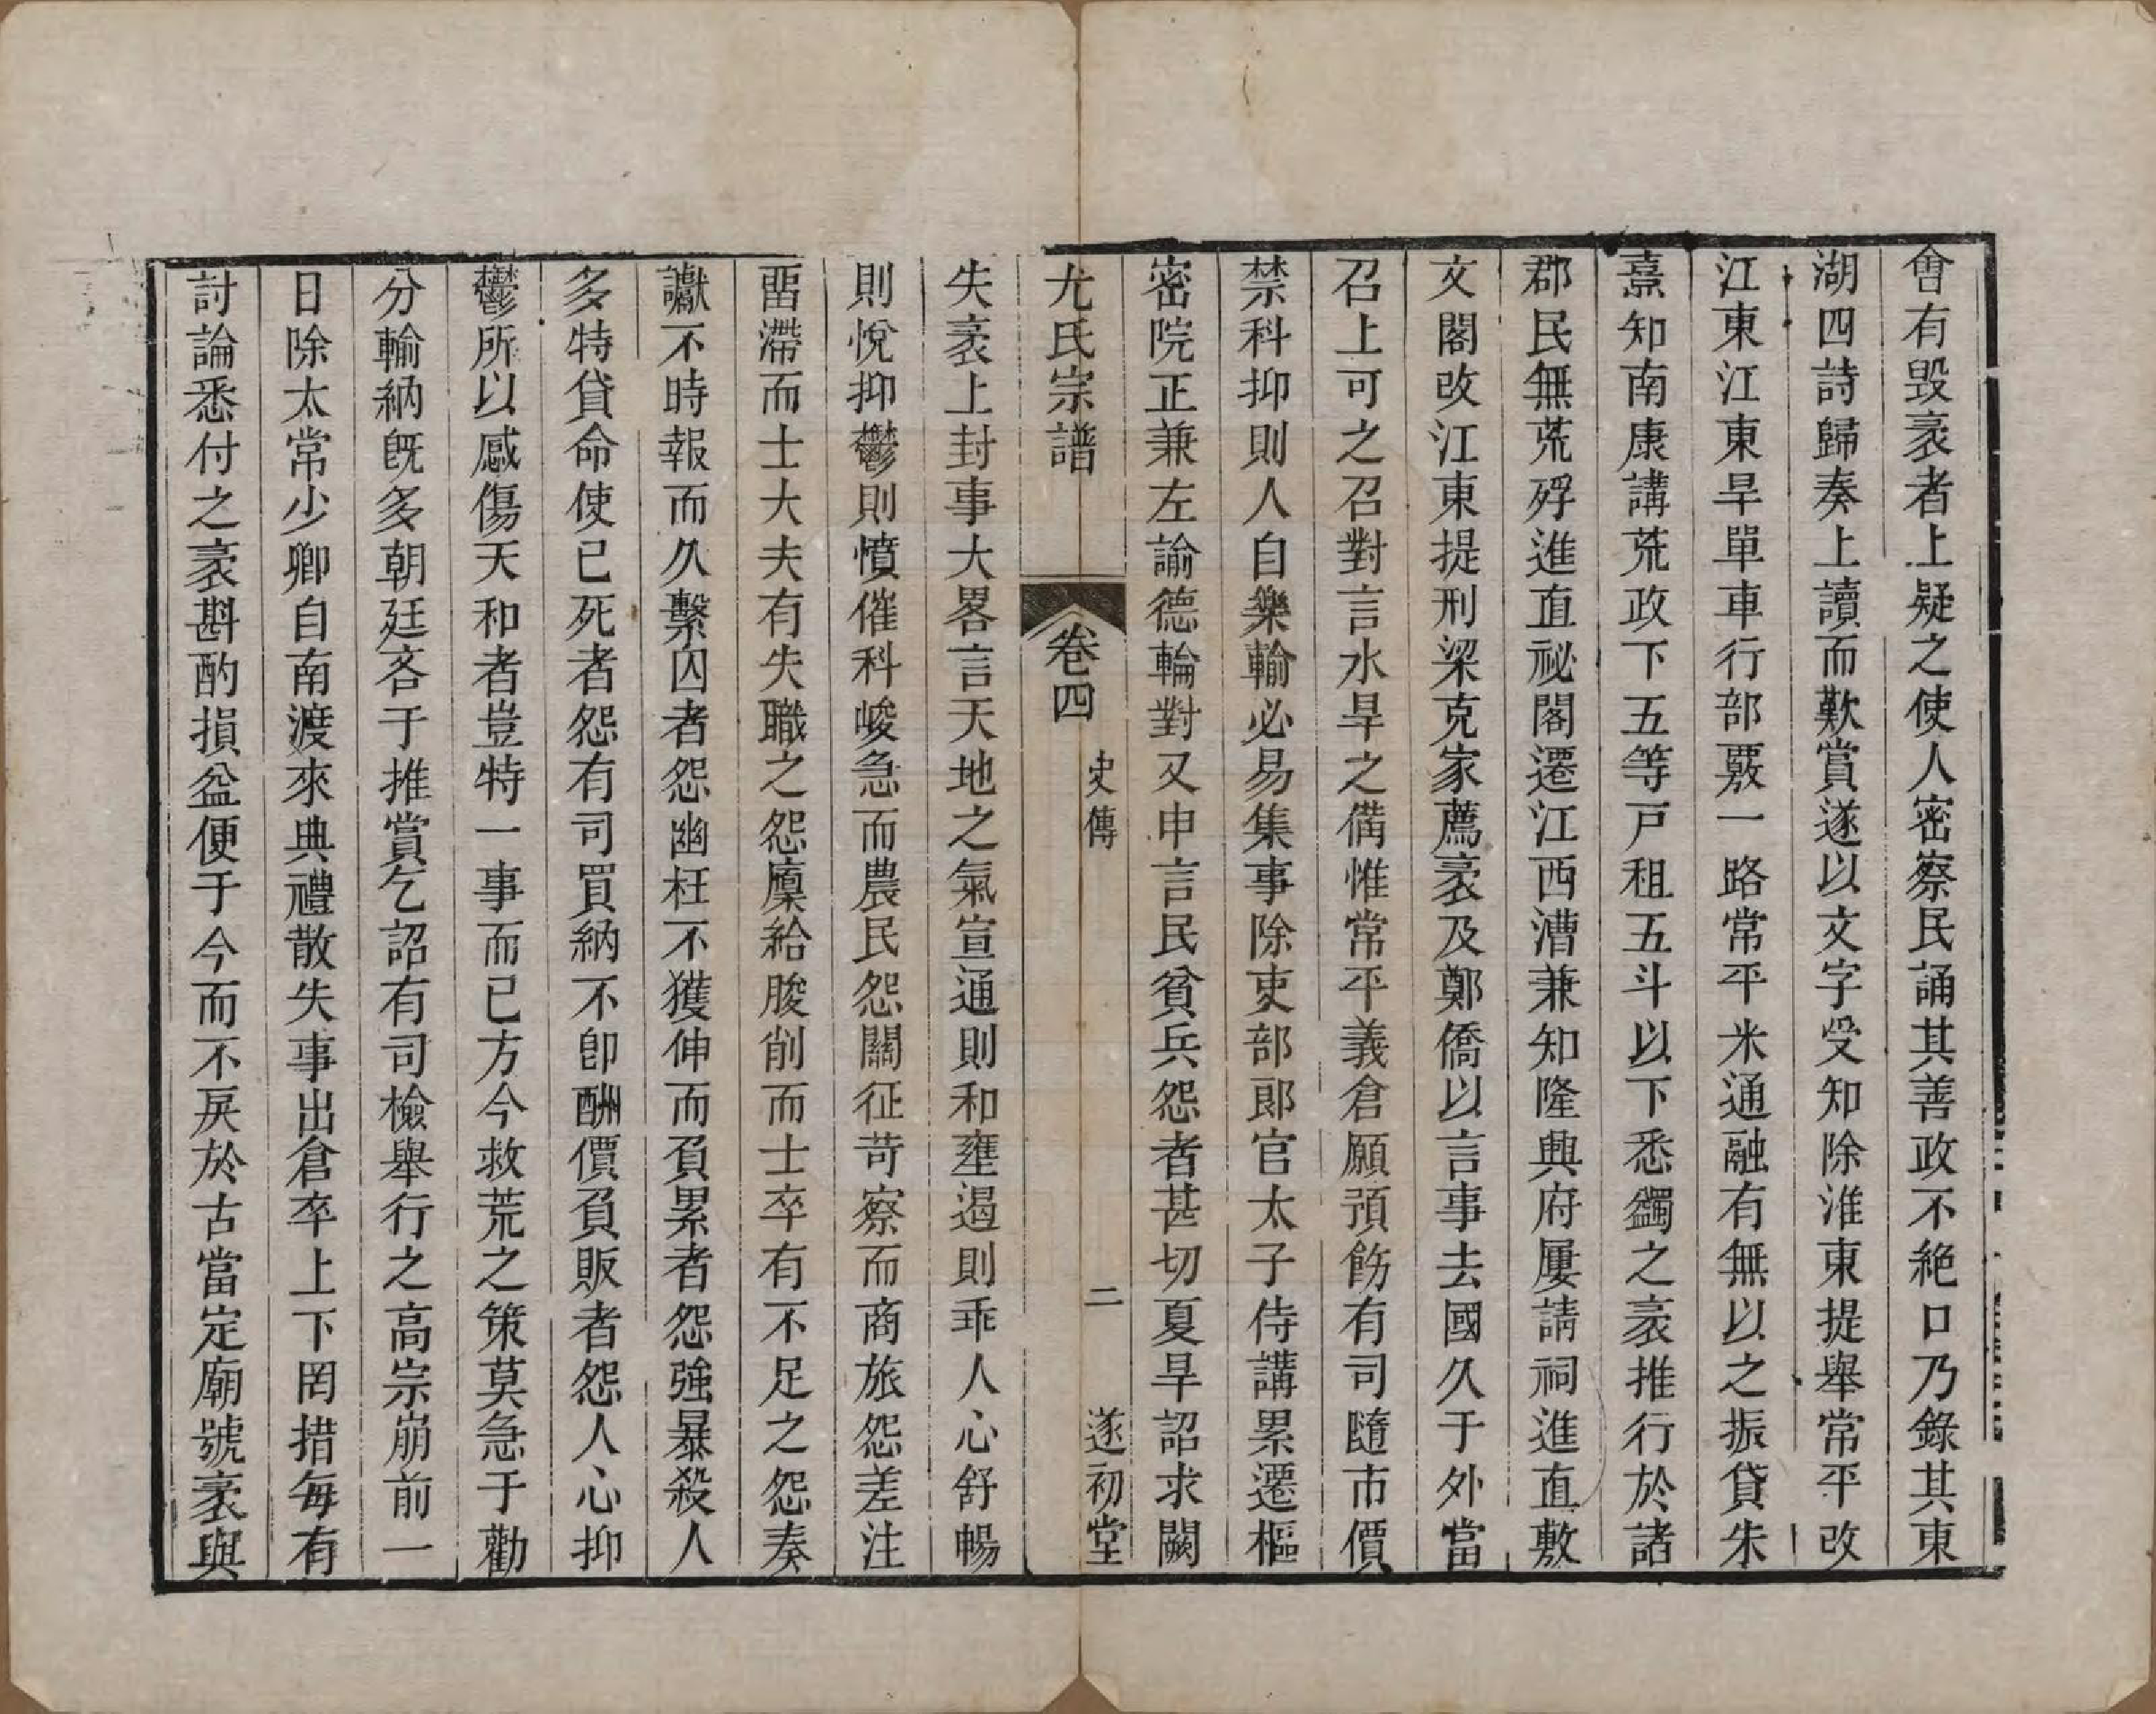 會有毀袤者上疑之使人密察民誦其善政不絶口乃錄其東
湖四詩歸奏上讀而歎賞遂以文字受知除淮東提舉常平改
江東江東旱單車行部覈一路常平米通融有無以之振貸朱
熹知南康講荒政下五等戸租五斗以下悉蠲之袤推行於諸
郡民無荒殍進直祕閣遷江西漕兼知隆興府屢請祠進直敷
文閣改江東提刑梁克家薦袤及鄭僑以言事去國久于外當
召上可之召對言水旱之備惟常平義倉願預飭有司隨市價
禁科抑則人自樂輸必易集事除吏部郎官太子侍講累遷樞
密院正兼左諭德輪對又申言民貧兵怨者甚切夏旱詔求闕
尤氏宗譜 卷四 史傳 二 遂初堂
失袤上封事大畧言天地之氣宣通則和壅遏則乖人心舒暢
則悅抑鬱則憤催科峻急而農民怨關征苛察而商旅怨差注
畱滯而士大夫有失職之怨廩給朘削而士卒有不足之怨奏
讞不時報而久繫囚者怨幽枉不獲伸而負累者怨強暴殺人
多特貸命使已死者怨有司買納不卽酬價負販者怨人心抑
鬱所以感傷天和者豈特一事而已方今救荒之策莫急于勸
分輸納旣多朝廷吝于推賞乞詔有司檢舉行之高宗崩前一
日除太常少卿自南渡來典禮散失事出倉卒上下罔措每有
討論悉付之袤斟酌損益便于今而不戾於古當定廟號袤與